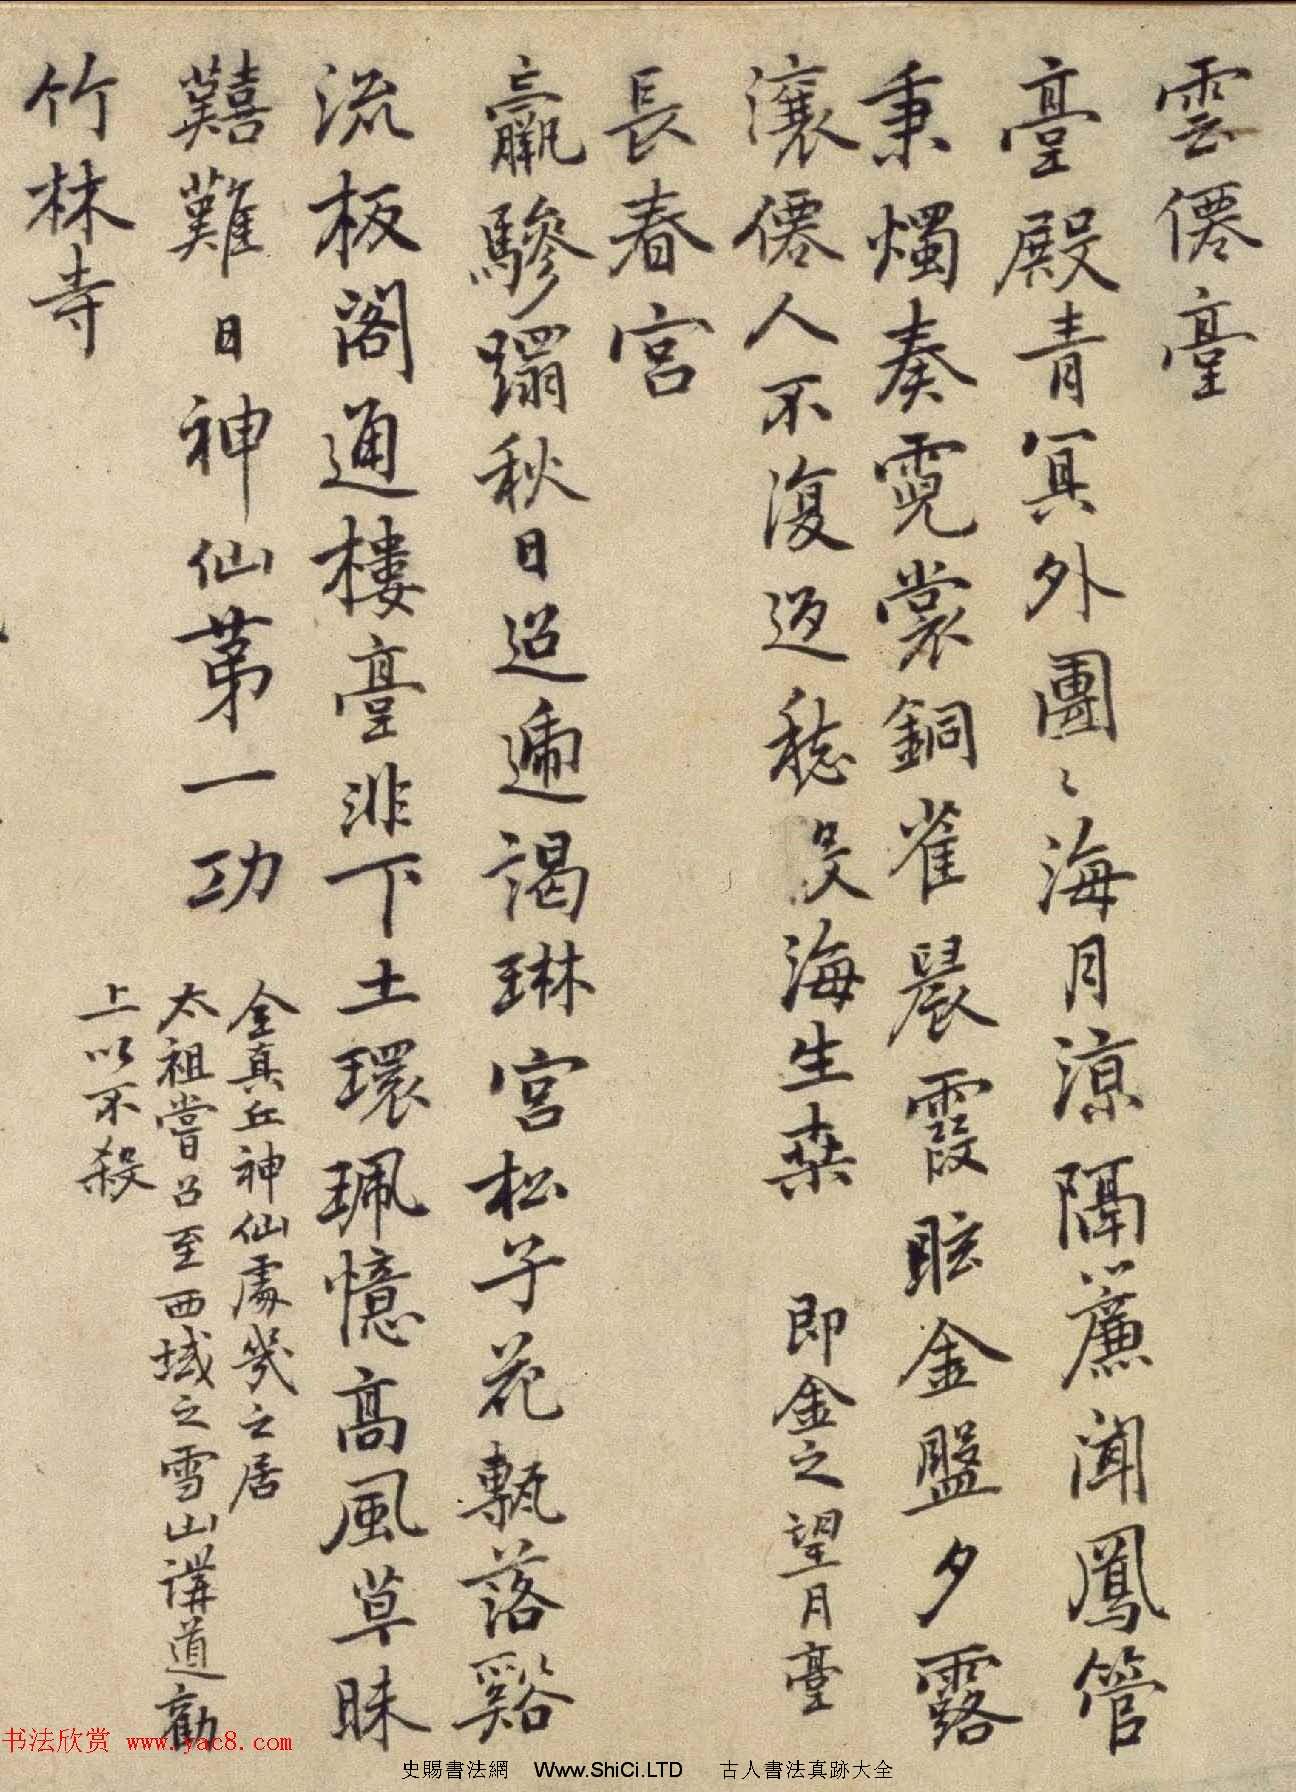 雲僊臺
臺殿青冥外團〻海月涼隔簾聞鳳管
秉燭奏霓裳銅雀晨霞眩金盤夕露
瀼僊人不復返愁見海生桒 即金之望月臺
長春宮
羸驂躡秋日迢遞謁琳宮松子花甎落谿
流板閣通樓臺非下土環珮憶高風草昧
囏難日神仙苐一功 全真丘神仙處幾之居
太祖嘗召至西域之雪山講道勸
上以不殺
竹林寺
书法欣赏 www.yac8.com
史賜書法網 Www.ShiCi.LTD 古人書法真跡大全